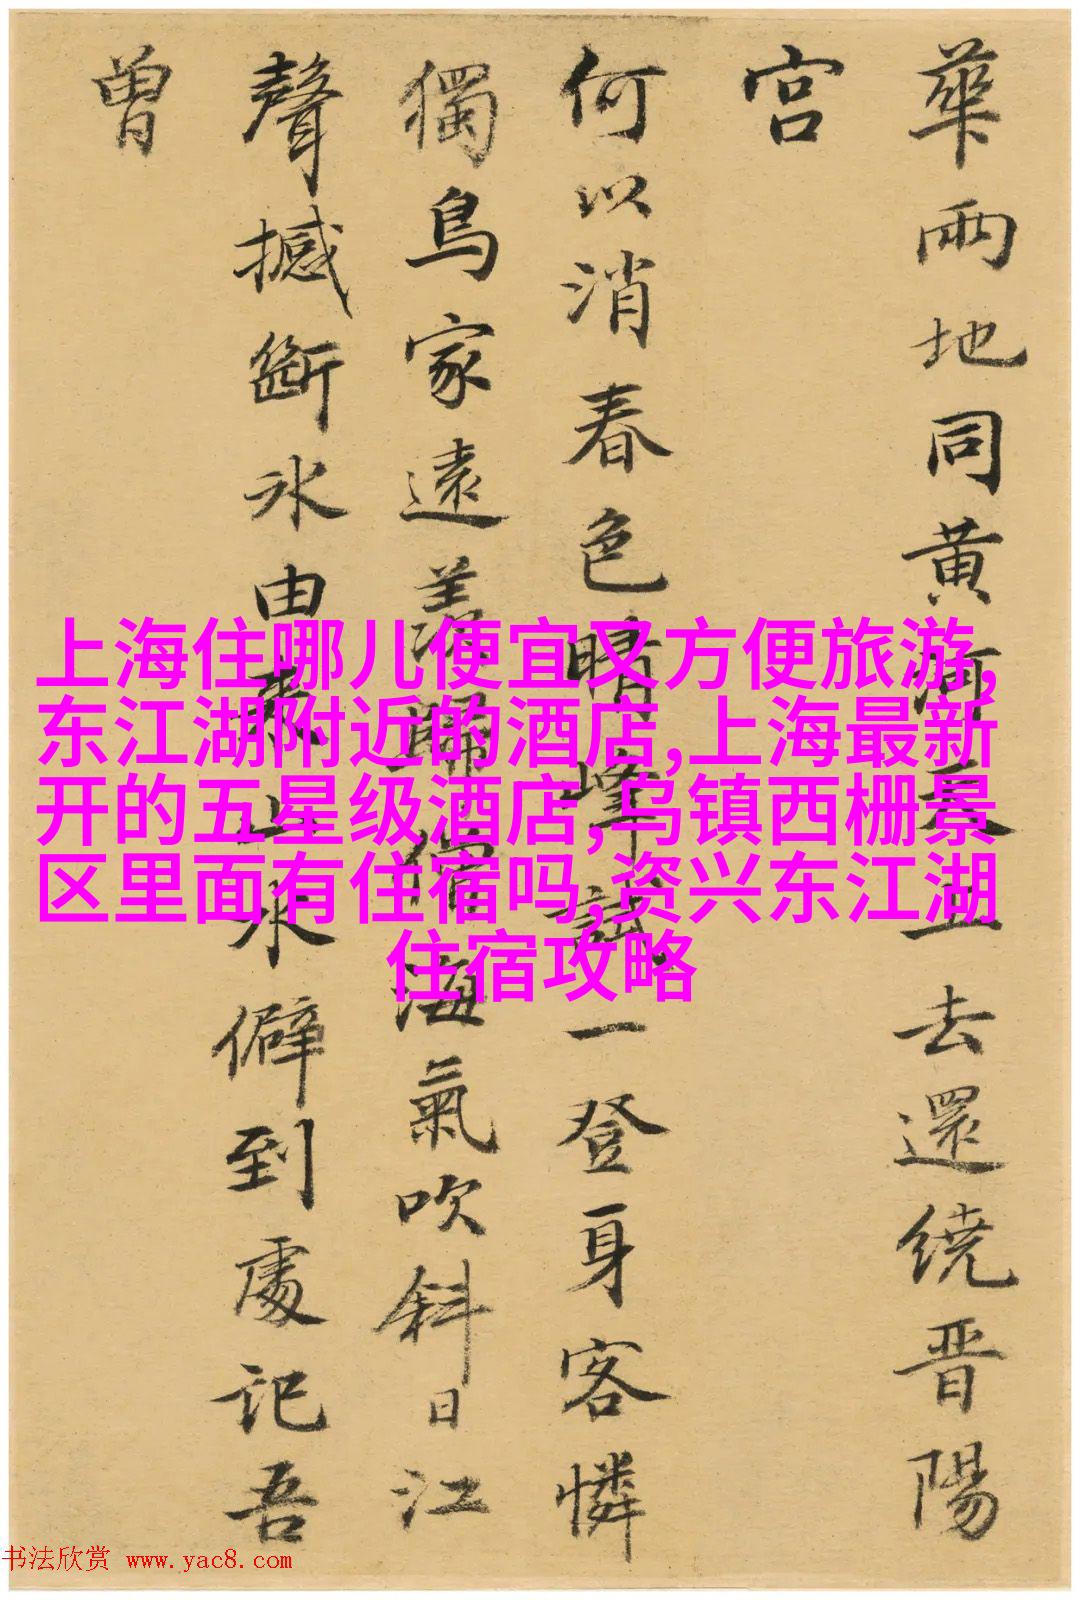 華兩地同黄天上去還繞晉陽
宫
何以消春色晴峰試一登身客憐
獨鳥家遠羨歸僧海氣吹斜日江
聲撼斷冰由來山水僻到處記吾
曾
上海住哪儿便宜又方便旅游,
东江湖附近的酒店,上海最新
开的五星级酒店,乌镇西栅景
区里面有住宿吗,资兴东江湖
住宿攻略
书法欣赏 www.yac8.com